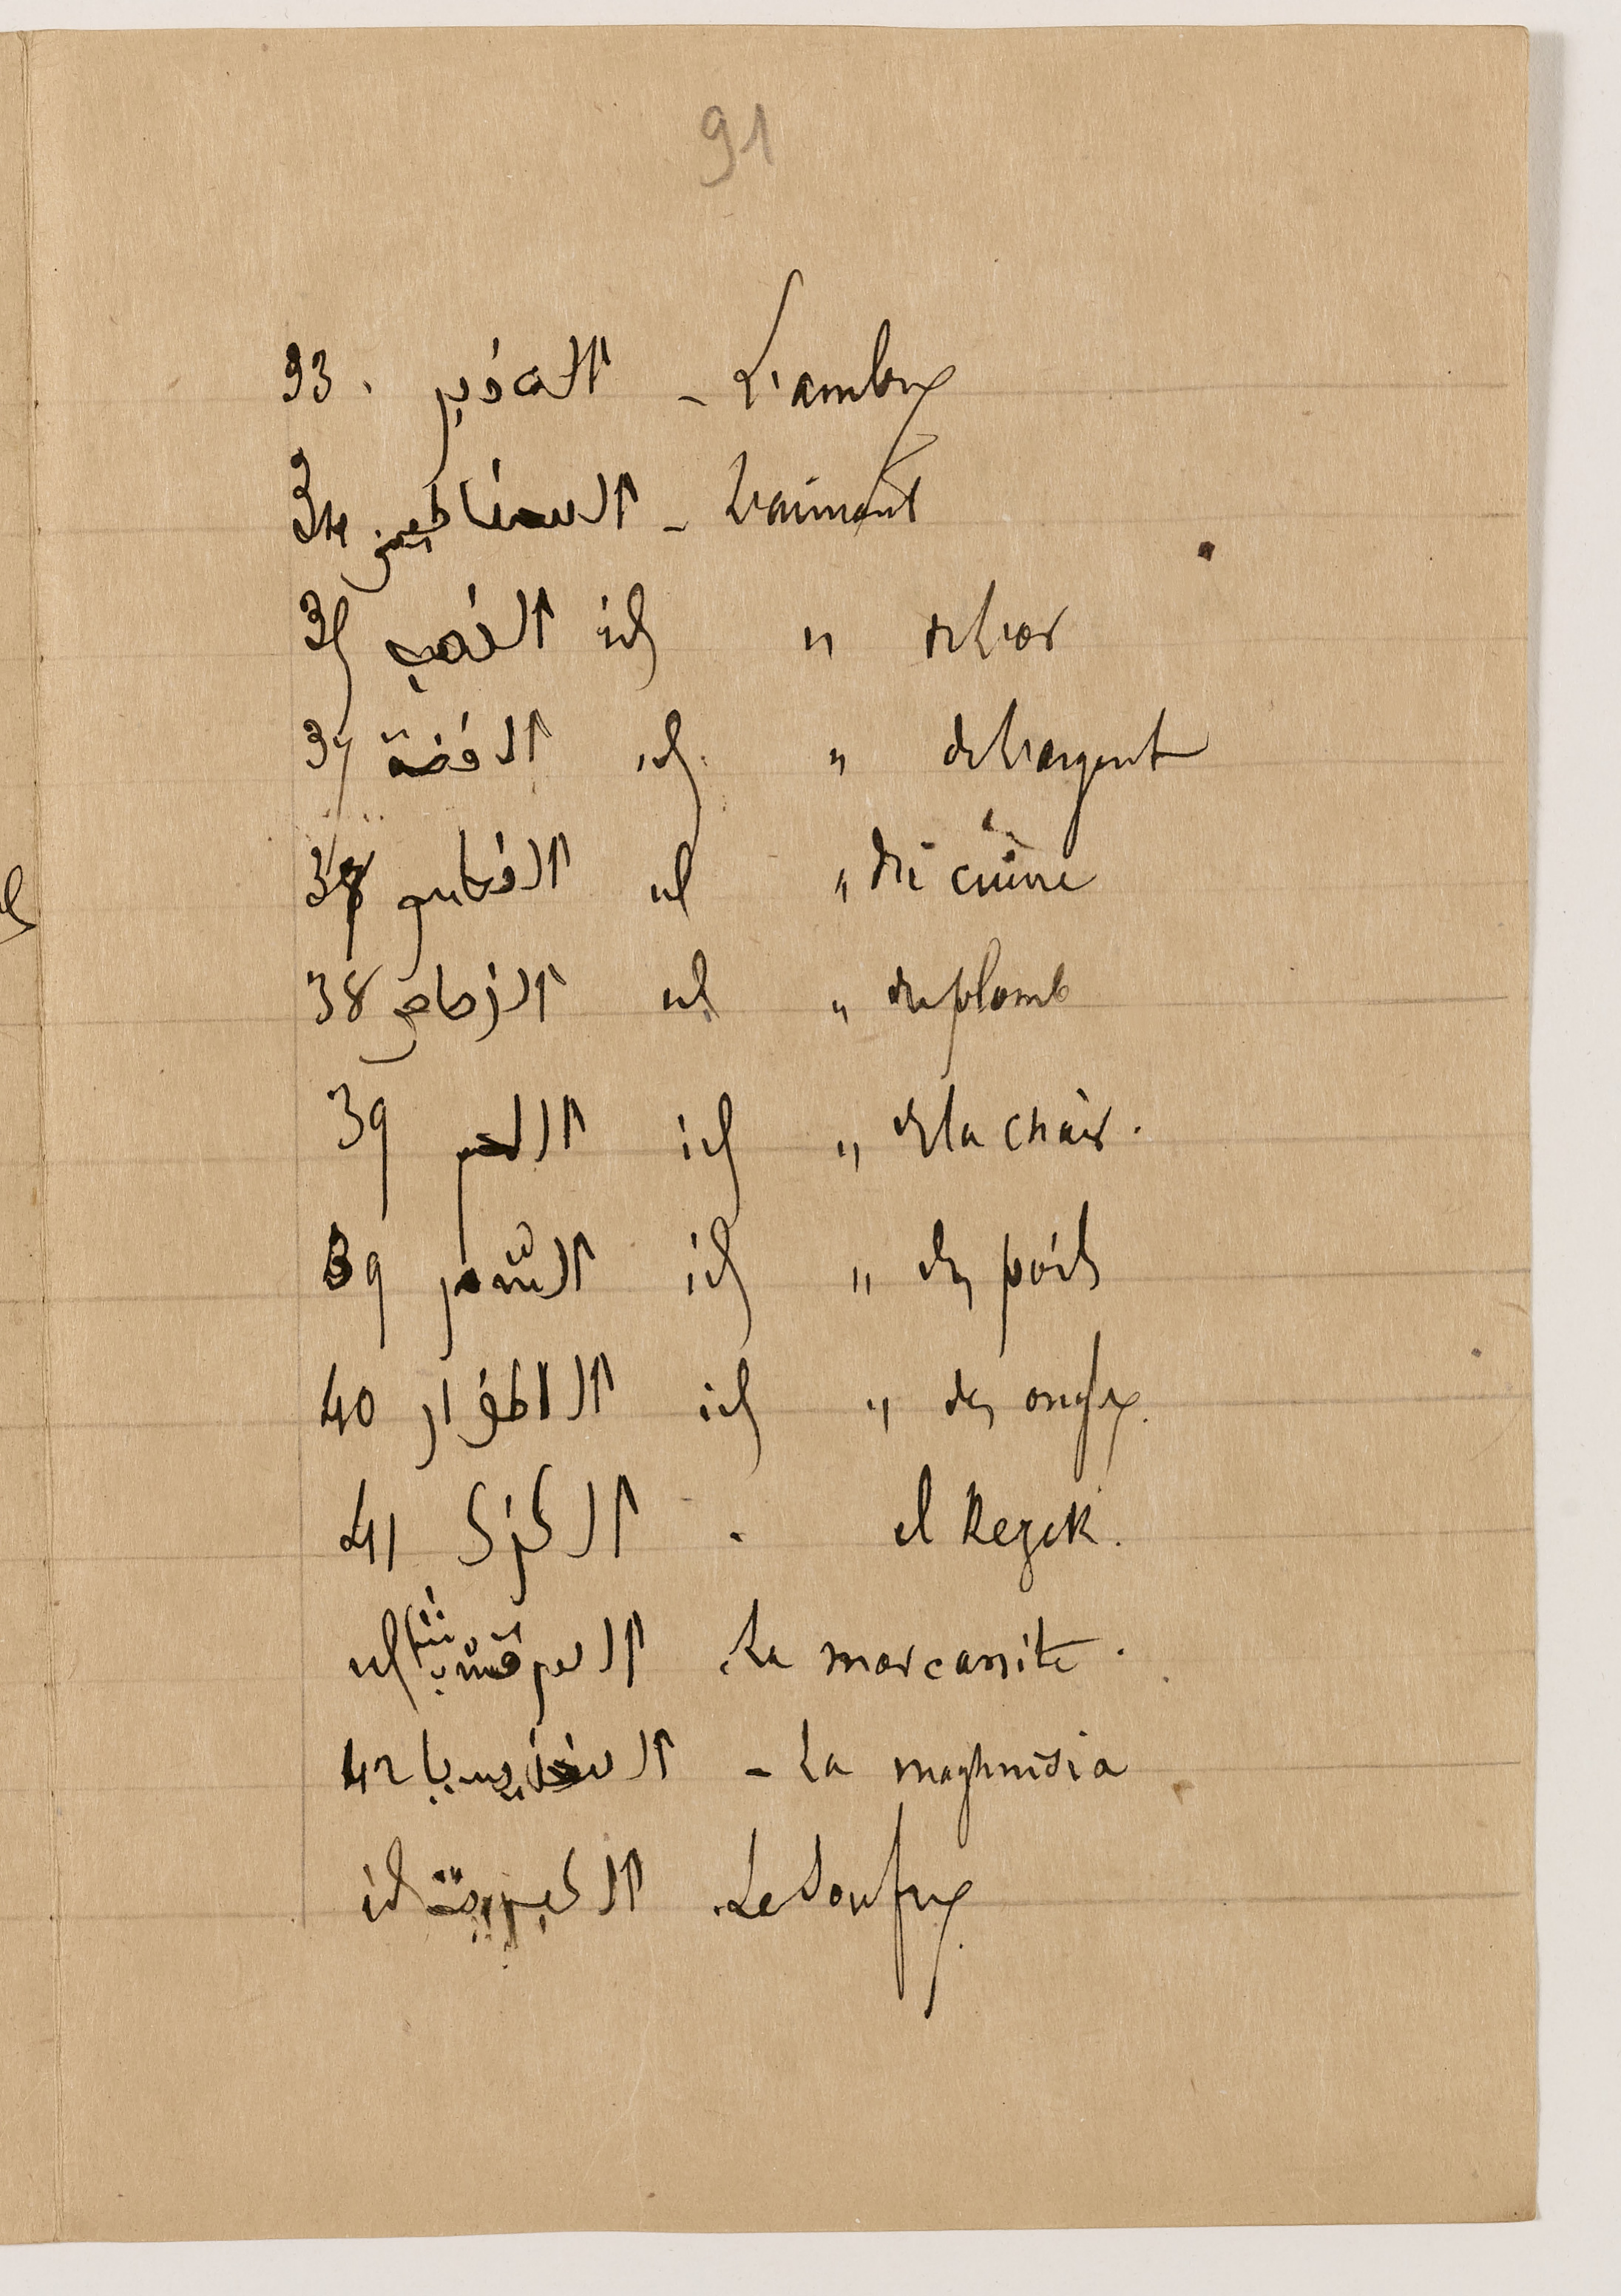 91
33. العنبر - L'ambre
34 المغناطيس - L'aimant
35 الذهب id " de l'or
37 الفضة id. " de l'argent
38 النحاس id " du cuivre
38 الرصاص id " du plomb
39 اللحم id " de la chair.
39 الشعر id " des poils
40 الاظفار id " des ongles.
41 الكزك . el Kezek.
id المرقشيثا La marcassite.
42 المغنيسيا - La maghnisia
id الكبريت Le Soufre.